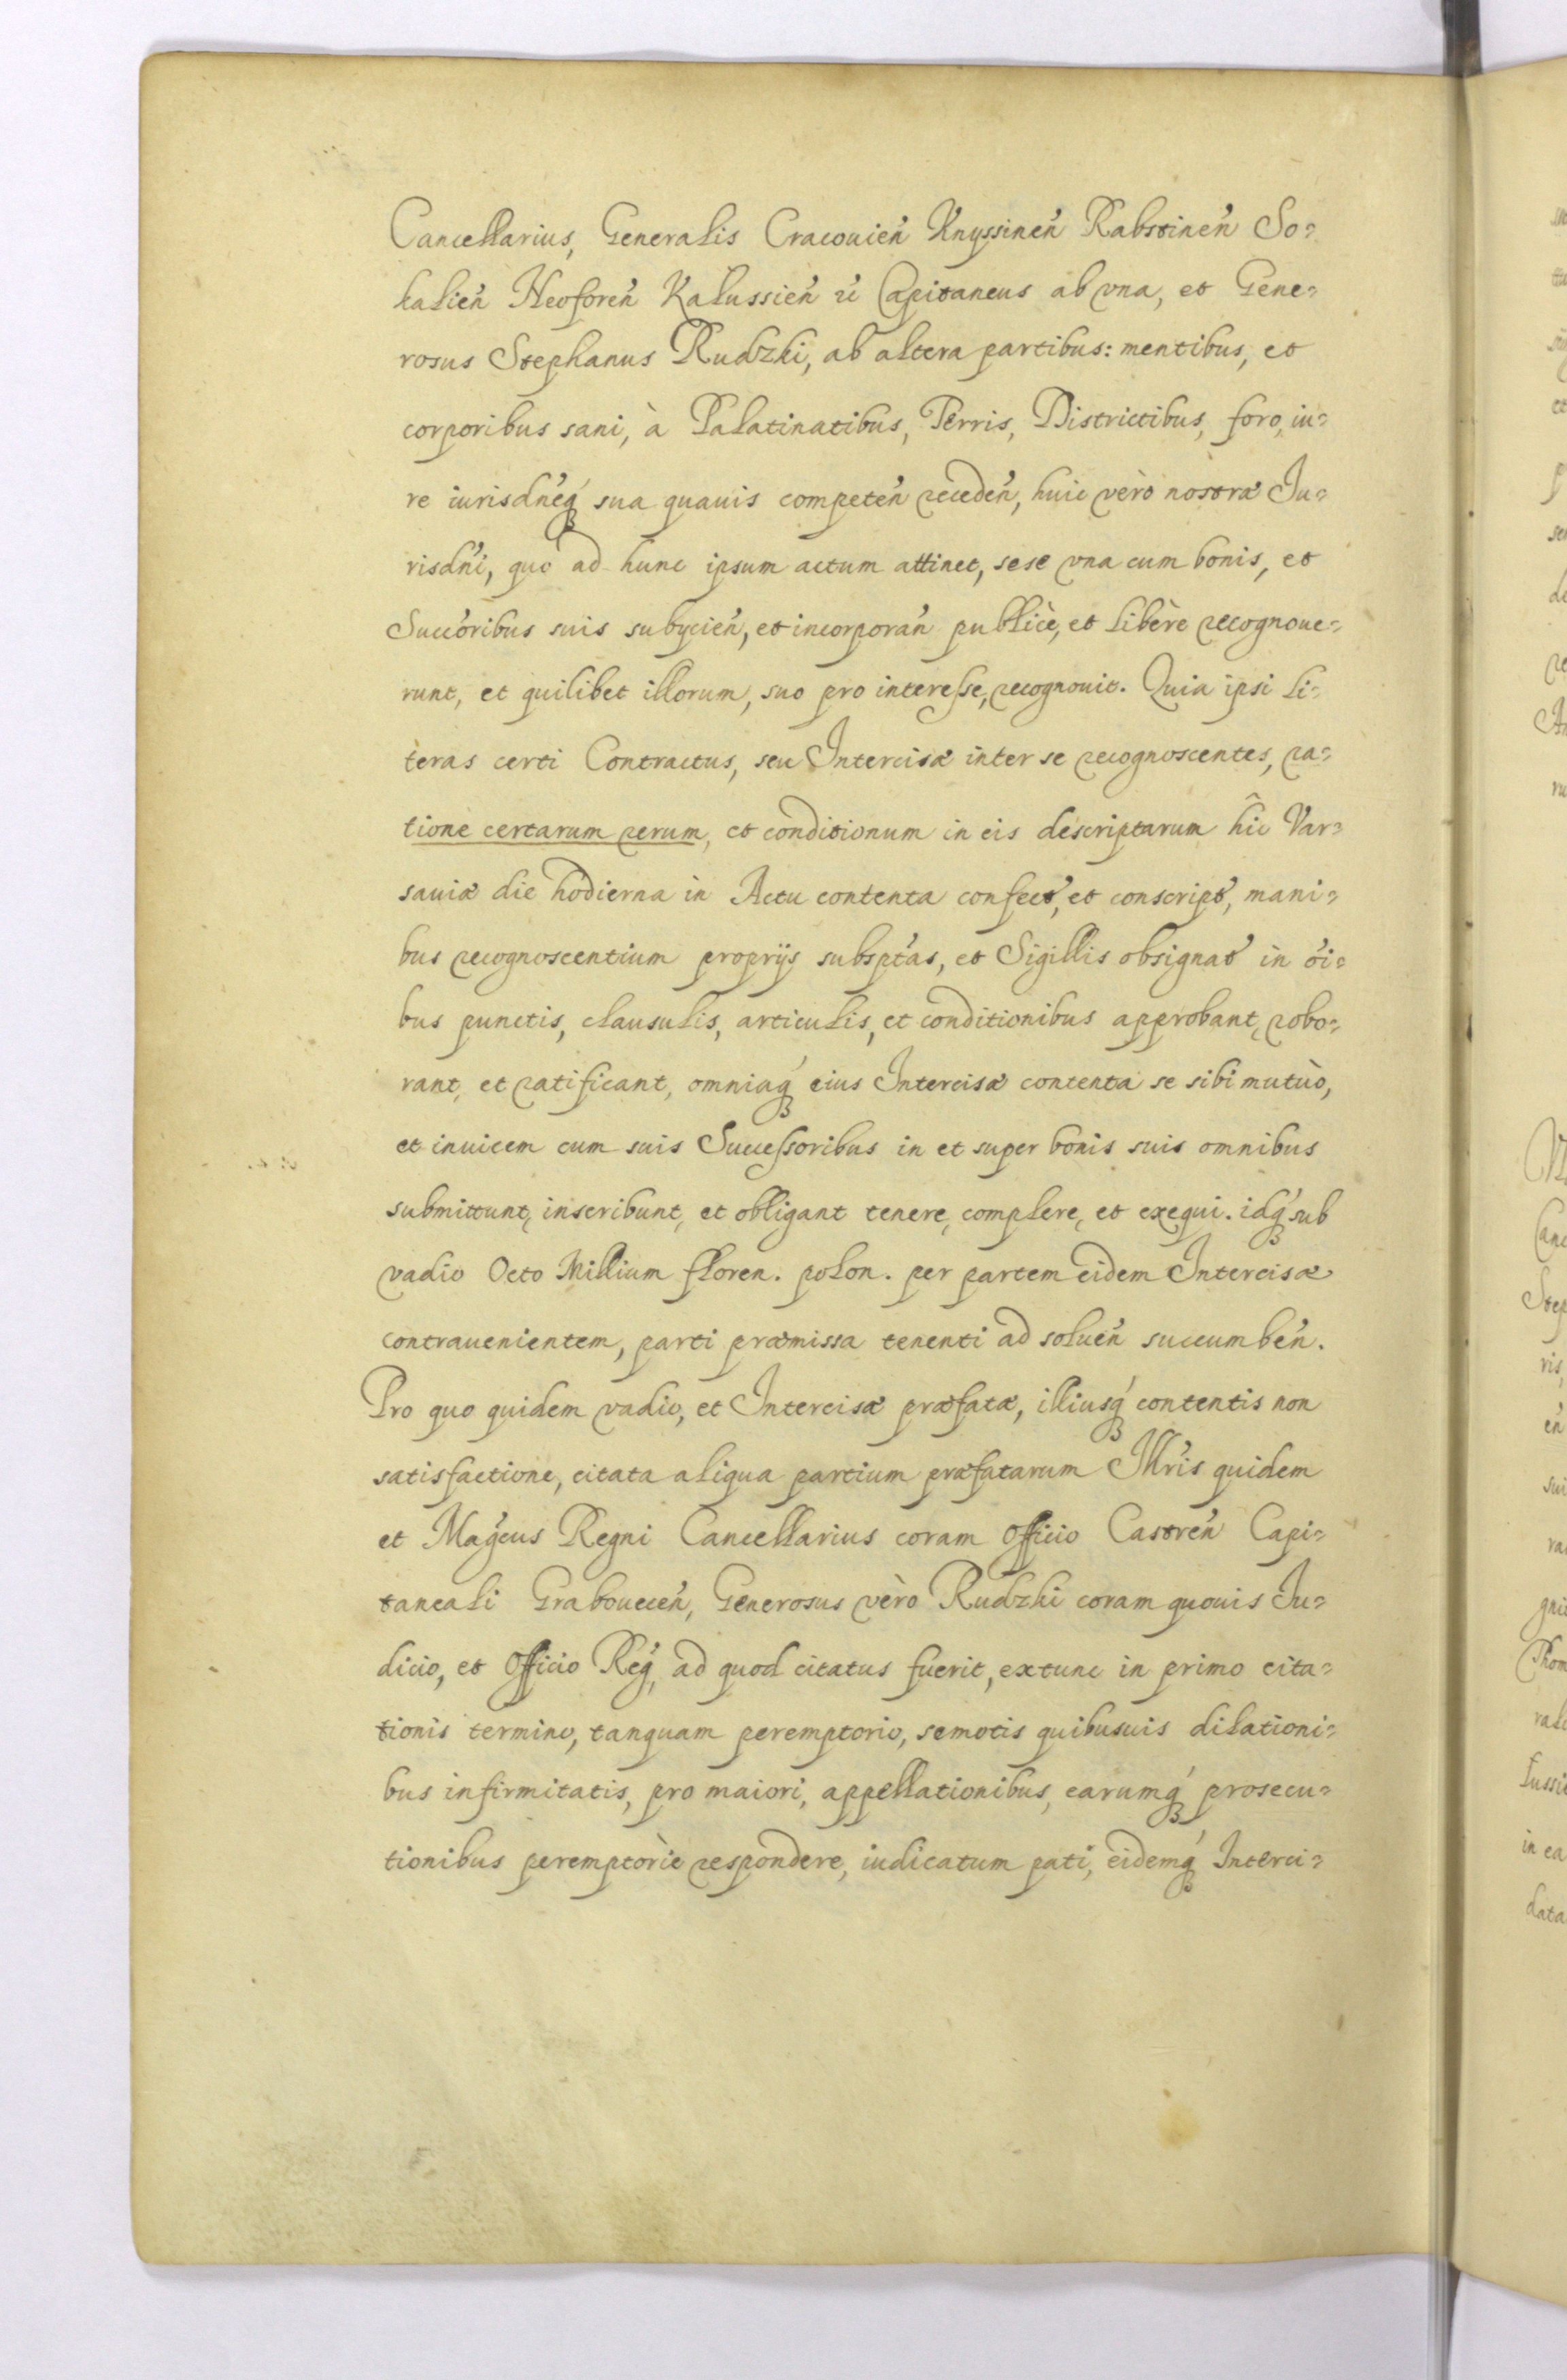 Cancellarius, Generalis Cracouien̄ Knyssinen̄ Rabstinen̄ So=
kalien̄ Neoforen̄ Kalussien̄ &c̄ Capitaneus ab vna, et Gene=
rosus Stephanus Rudzki, ab altera partibus: mentibus, et
corporibus sani, à Palatinatibus, Terris, Districtibus, foro, iu=
re iurisdn̄eq́ꝫ sua quauis competen̄ receden̄, huic verò nostræ Ju=
risdn̄i, quo ad hunc ipsum actum attinet, sese vna cum bonis, et
Succ̄oribus suis subycien̄, et incorporan̄ publicè, et liberè recognoue=
runt, et quilibet illorum, suo pro interesse, recognouit. Quia ipsi li=
teras certi Contractus, seu Intercisæ inter se recognoscentes, ra=
tione certarum rerum, et conditionum in eis descriptarum hîc Var=
sauiæ die hodierna in Actu contenta confect̄, et conscript̄, mani=
bus recognoscentium proprijs subspt̄as, et Sigillis obsignat̄ in ōi=
bus punctis, clausulis, articulis, et conditionibus approbant, robo=
rant, et ratificant, omniaq́ꝫ eius Intercisæ contenta se sibi mutuò,
et inuicem cum suis Successoribus in et super bonis suis omnibus
submittunt, inscribunt, et obligant tenere, complere, et exequi. idq́ꝫ sub
vadio Octo Millium floren. polon. per partem eidem Intercisæ
contrauenientem, parti præmissa tenenti ad soluen̄ succumben̄.
Pro quo quidem vadio, et Intercisæ præfatæ, illiusq́ꝫ contentis non
satisfactione, citata aliqua partium præfatarum Illr̄is quidem
et Magc̄us Regni Cancellarius coram Officio Castren̄ Capi=
taneali Grabouecen̄, Generosus verò Rudzki coram quouis Ju=
dicio, et Officio Reḡ, ad quod citatus fuerit, extunc in primo cita=
tionis termino, tanquam peremptorio, semotis quibusuis dilationi=
bus infirmitatis, pro maiori, appellationibus, earumq́ꝫ prosecu=
tionibus peremptoriè respondere, iudicatum pati, eidemq́ꝫ Interci=